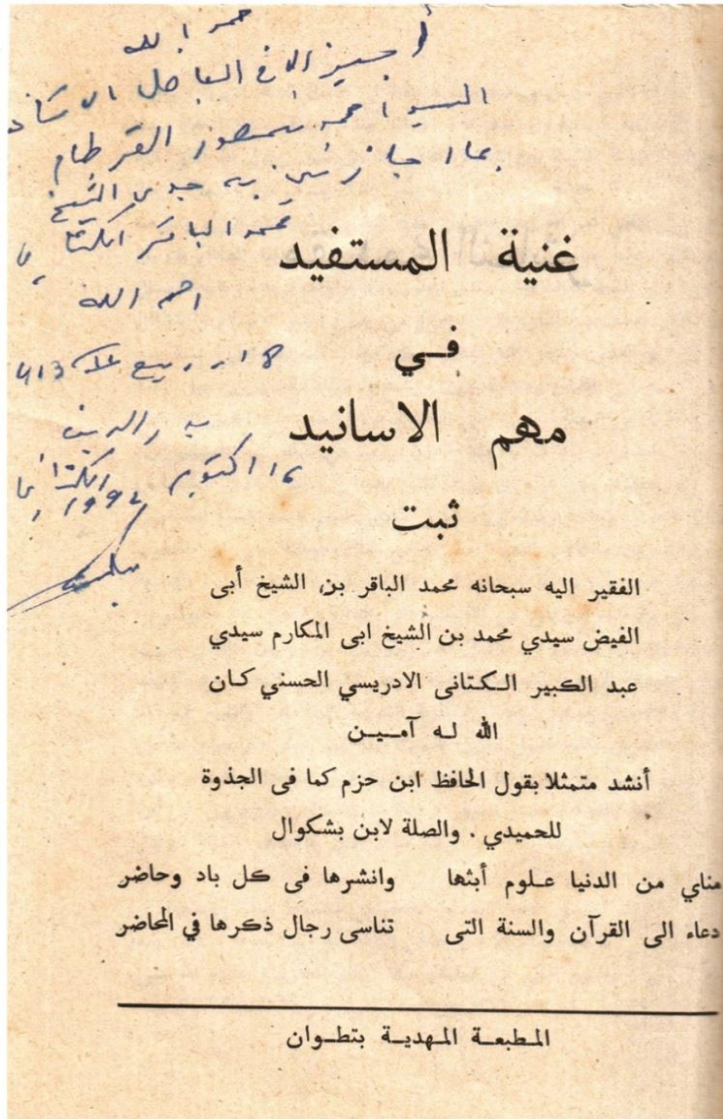 حمد الله
أجيز الاخ الفاضل الاستاذ
السيد احمد منصور القرطام
بما اجازني به جدي الشيخ
محمد الباقر الكتاني
رحمه الله
18 ربيع 413
بدر الدين
الكتاني
16 اكتوبر 1992
غنية المستفيد
في
مهم الاسانيد
ثبت
الفقير اليه سبحانه محمد الباقر بن الشيخ أبى
الفيض سيدي محمد بن الشيخ ابى المكارم سيدي
عبد الكبير الكتانى الادريسي الحسني كان
الله له آمين
أنشد متمثلا بقول الحافظ ابن حزم كما فى الجذوة
للحميدي . والصلة لابن بشكوال
مناي من الدنيا علوم أبثها وانشرها فى كل باد وحاضر
دعاء الى القرآن والسنة التى تناسى رجال ذكرها في المحاضر
المطبعة المهدية بتطوان